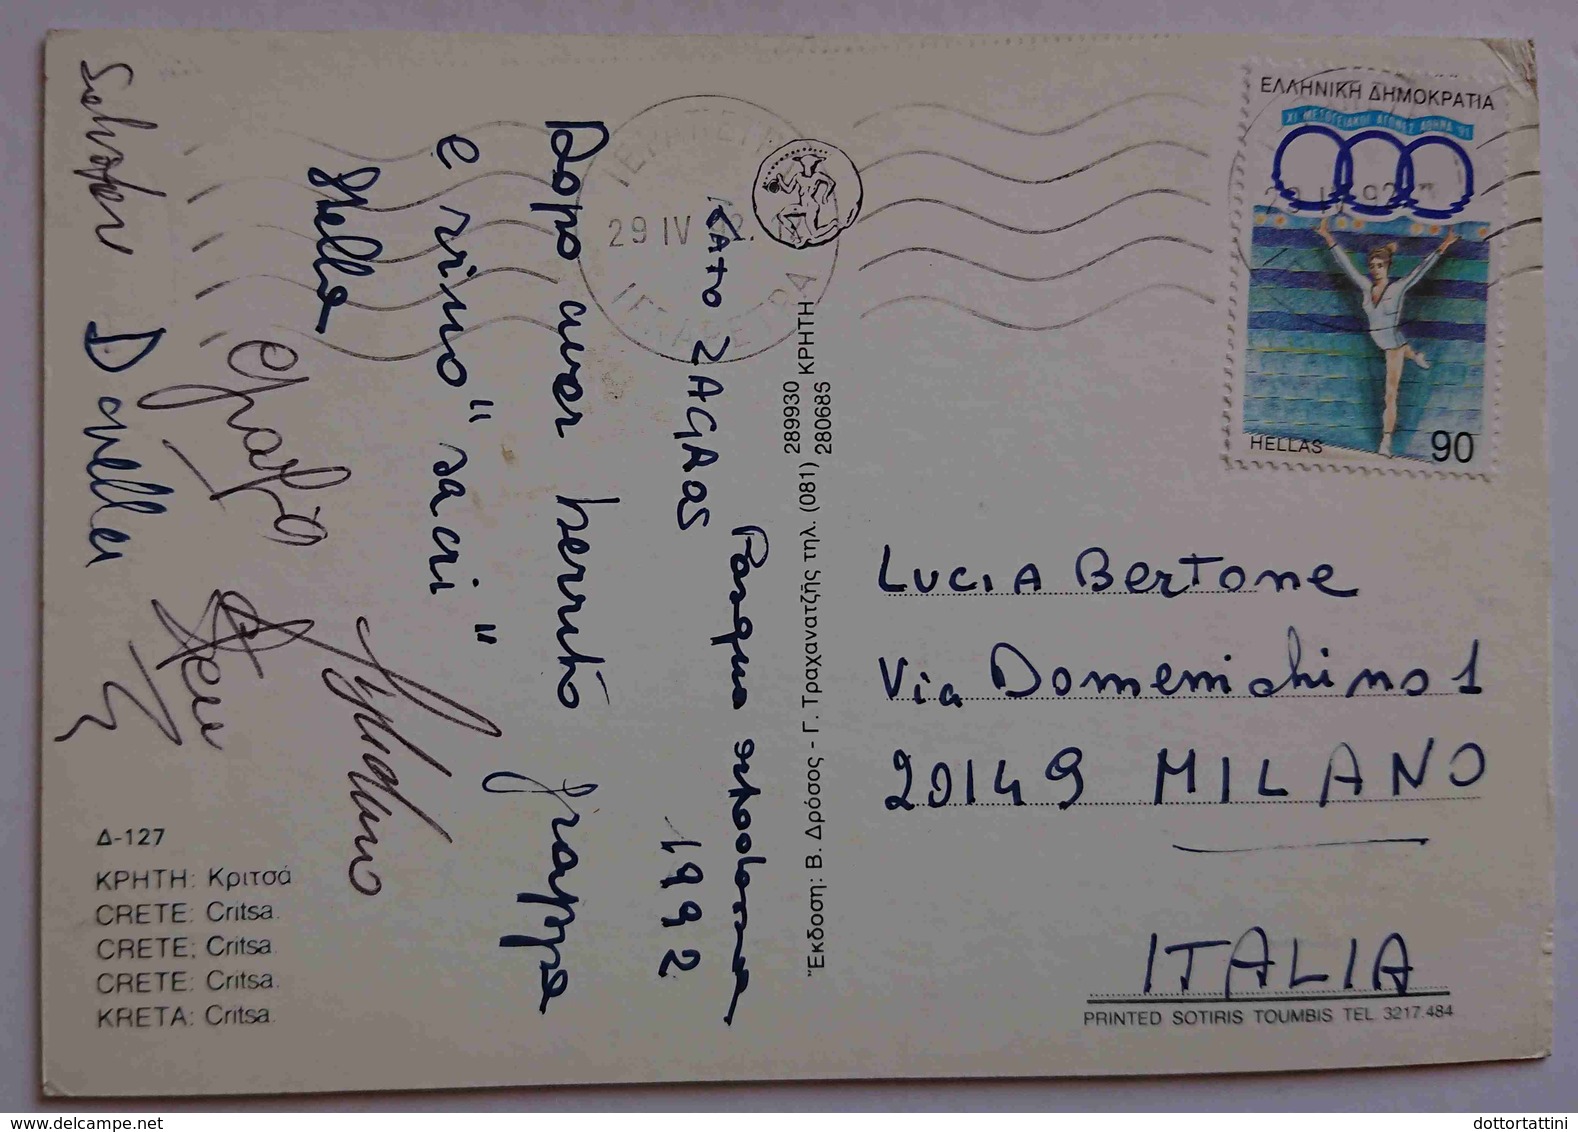 ΕΛΛΗΝΙΚΗ ΔΗΜΟΚΡΑΤΙΑ
XI ΜΕΣΟΓΕΙΑΚΟΙ ΑΓΩΝΕΣ ΑΘΗΝΑ '91
HELLAS 90
29 IV 92
ΙΕΡΑΠΕΤΡΑ
ΙΕΡΑΠΕΤΡΑ
KATO ZAGROS
Pasqua ortodossa
1992
Dopo aver bevuto grappa
e "vino" "sacri"
Stella
Daniella
Lucia Bertone
Via Domenichino 1
20149 MILANO
ITALIA
Έκδοση: Β. Δρόσος - Γ. Τραχανατζής τηλ. (081) 289930 280685 ΚΡΗΤΗ
Δ-127
ΚΡΗΤΗ: Κριτσά
CRETE: Critsa.
CRETE: Critsa.
CRETE: Critsa.
KRETA: Critsa.
PRINTED SOTIRIS TOUMBIS TEL 3217.484
dottortattini